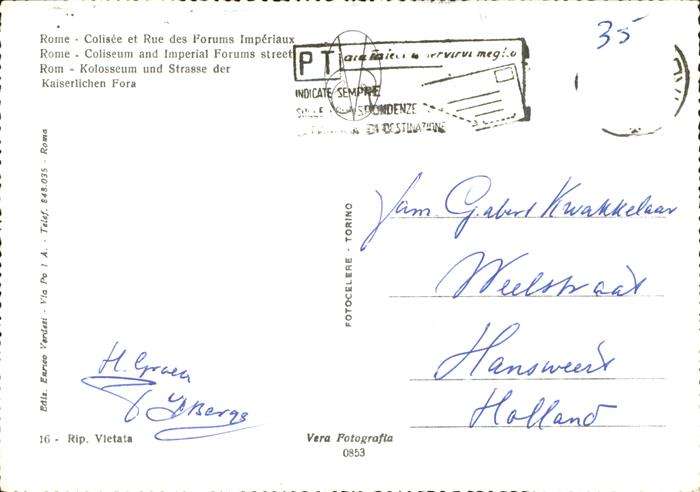 Rome - Colisée et Rue des Forums Impériaux
Rome - Coliseum and Imperial Forums street
Rom - Kolosseum und Strasse der
Kaiserlichen Fora
35
PT
servirvi meglio
INDICATE SEMPRE
SULLE CORRISPONDENZE
DI DESTINAZIONE
Ediz. Enrico Verdesi - Via Po 1 A. - Telef. 848.035 - Roma
FOTOCELERE - TORINO
Fam. G. abert Kwakkelaar
Weelstraat
Hansweert
Holland
H. Groen
16 - Rip. Vietata
Vera Fotografia
0853